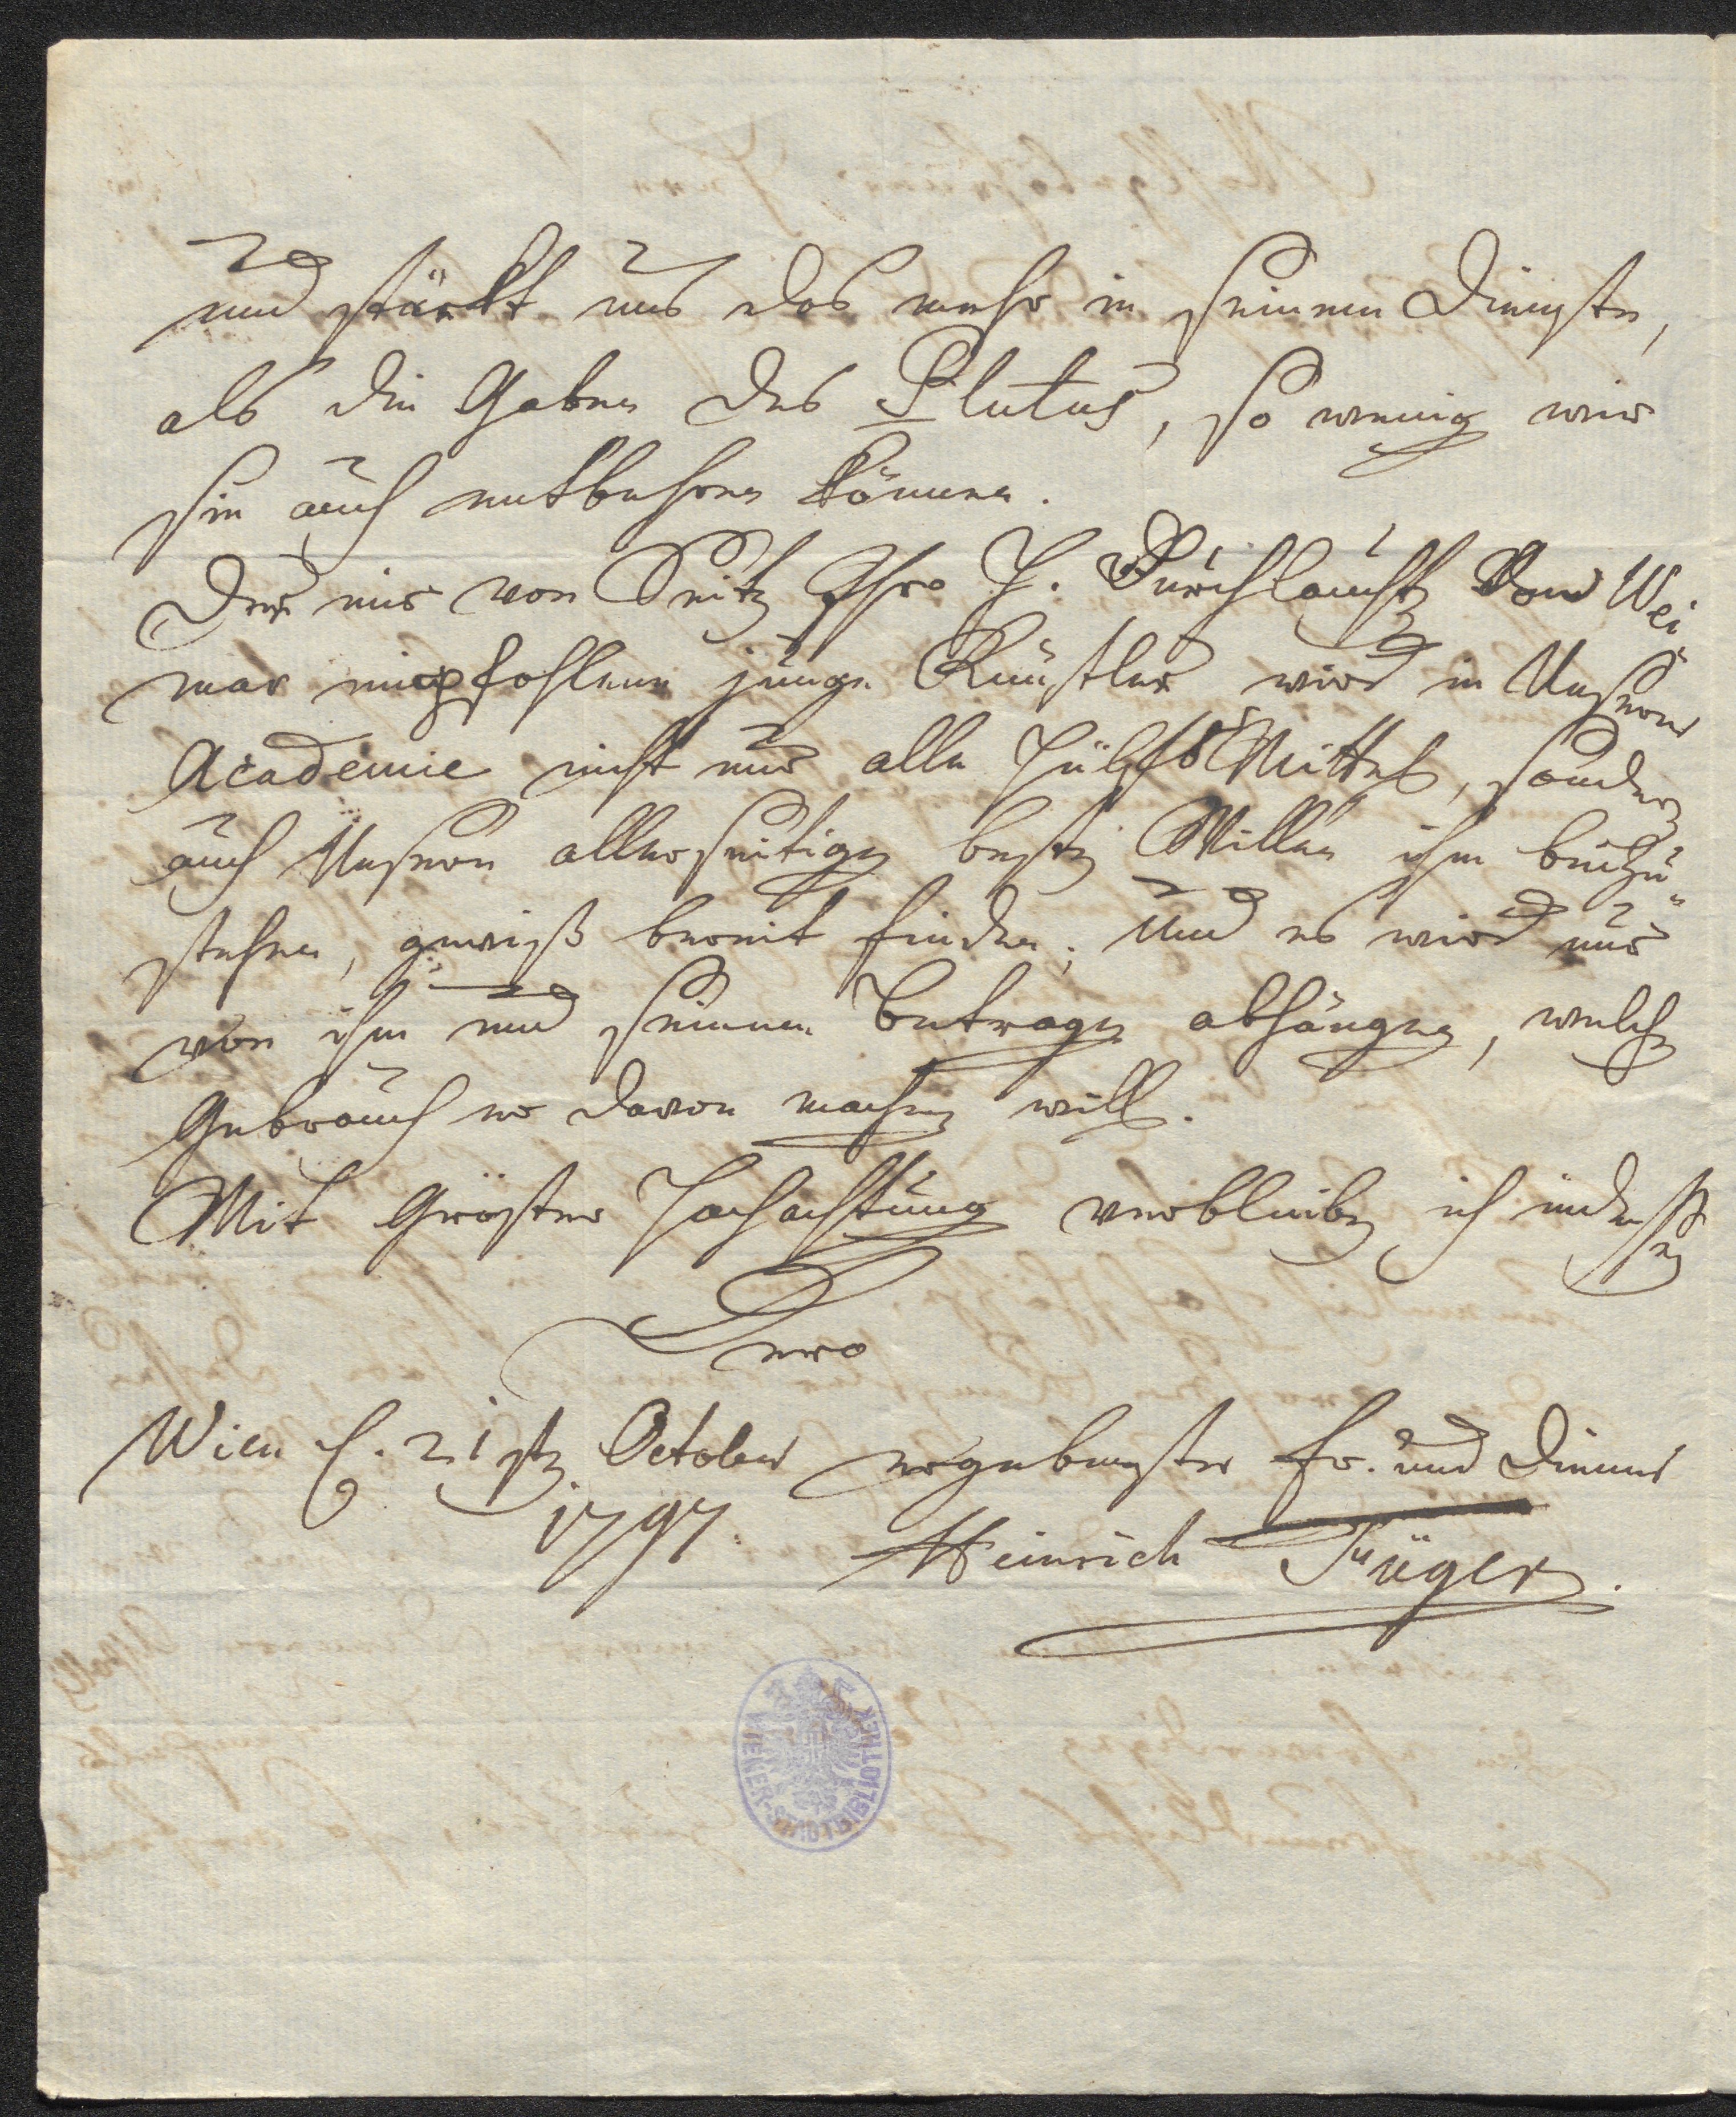 und stärkt uns das mehr in seinem Dienste,
als die Gaben des Plutus, so wenig wir
sie auch entbehren können.
Der mir von Seite Ihro H. Durchlaucht von Wei
mar empfohlene junge Künstler wird in Unserer
Academie nicht nur alle Hülfs Mittel, sondern
auch Unseren allerseitigen besten Willen ihm beizu"
stehen, gewiß bereit finden; Und es wird nur
von ihm und seinem Betragen abhängen, welchen
Gebrauch er davon machen will.
Mit Gröster Hochachtung verbleibe ich indessen
Dero
Wien d. 21sten October ergebenster Fr. und Diener
1797. Heinrich Füger.
WIENER-STADTBIBLIOTHEK